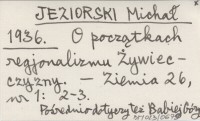 JEZIORSKI Michał
1936. O początkach
regjonalizmu Żywiec-
czyzny. — Ziemia 26,
nr 1: 2-3.
Pośrednio dotyczy też Babiej Góry